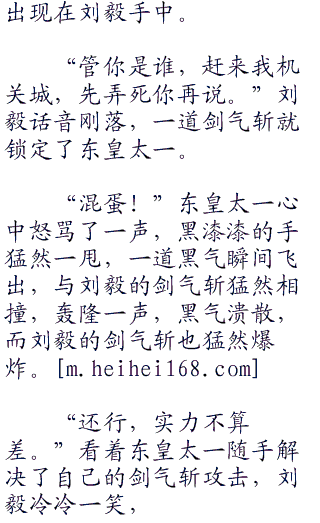 出现在刘毅手中。
“管你是谁，赶来我机
关城，先弄死你再说。”刘
毅话音刚落，一道剑气斩就
锁定了东皇太一。
“混蛋！”东皇太一心
中怒骂了一声，黑漆漆的手
猛然一甩，一道黑气瞬间飞
出，与刘毅的剑气斩猛然相
撞，轰隆一声，黑气溃散，
而刘毅的剑气斩也猛然爆
炸。[m.heihei168.com]
“还行，实力不算
差。”看着东皇太一随手解
决了自己的剑气斩攻击，刘
毅冷冷一笑，